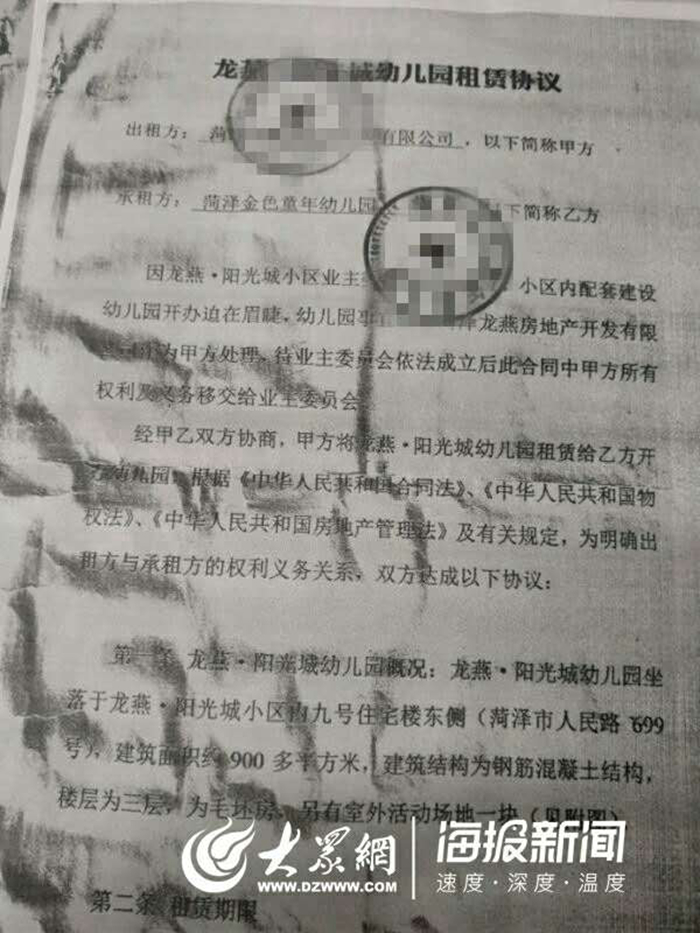 龙燕 城幼儿园租赁协议
出租方: 菏 有限公司,以下简称甲方
承租方: 菏泽金色童年幼儿园 下简称乙方
因龙燕·阳光城小区业主 小区内配套建设
幼儿园开办迫在眉睫,幼儿园事 龙燕房地产开发有限
为甲方处理,待业主委员会依法成立后此合同中甲方所有
权利及义务移交给业主委员会
经甲乙双方协商,甲方将龙燕·阳光城幼儿园租赁给乙方开
幼儿园,根据《中华人民共和国合同法》、《中华人民共和国物
权法》、《中华人民共和国房地产管理法》及有关规定,为明确出
租方与承租方的权利义务关系,双方达成以下协议:
第一条 龙燕·阳光城幼儿园概况:龙燕·阳光城幼儿园坐
落于龙燕·阳光城小区内九号住宅楼东侧(菏泽市人民路699
号),建筑面积约900多平方米,建筑结构为钢筋混凝土结构,
楼层为三层,为毛坯房,另有室外活动场地一块(见附图)
大众网 海报新闻
WWW.DZWWW.COM 速度·深度·温度
第二条 租赁期限